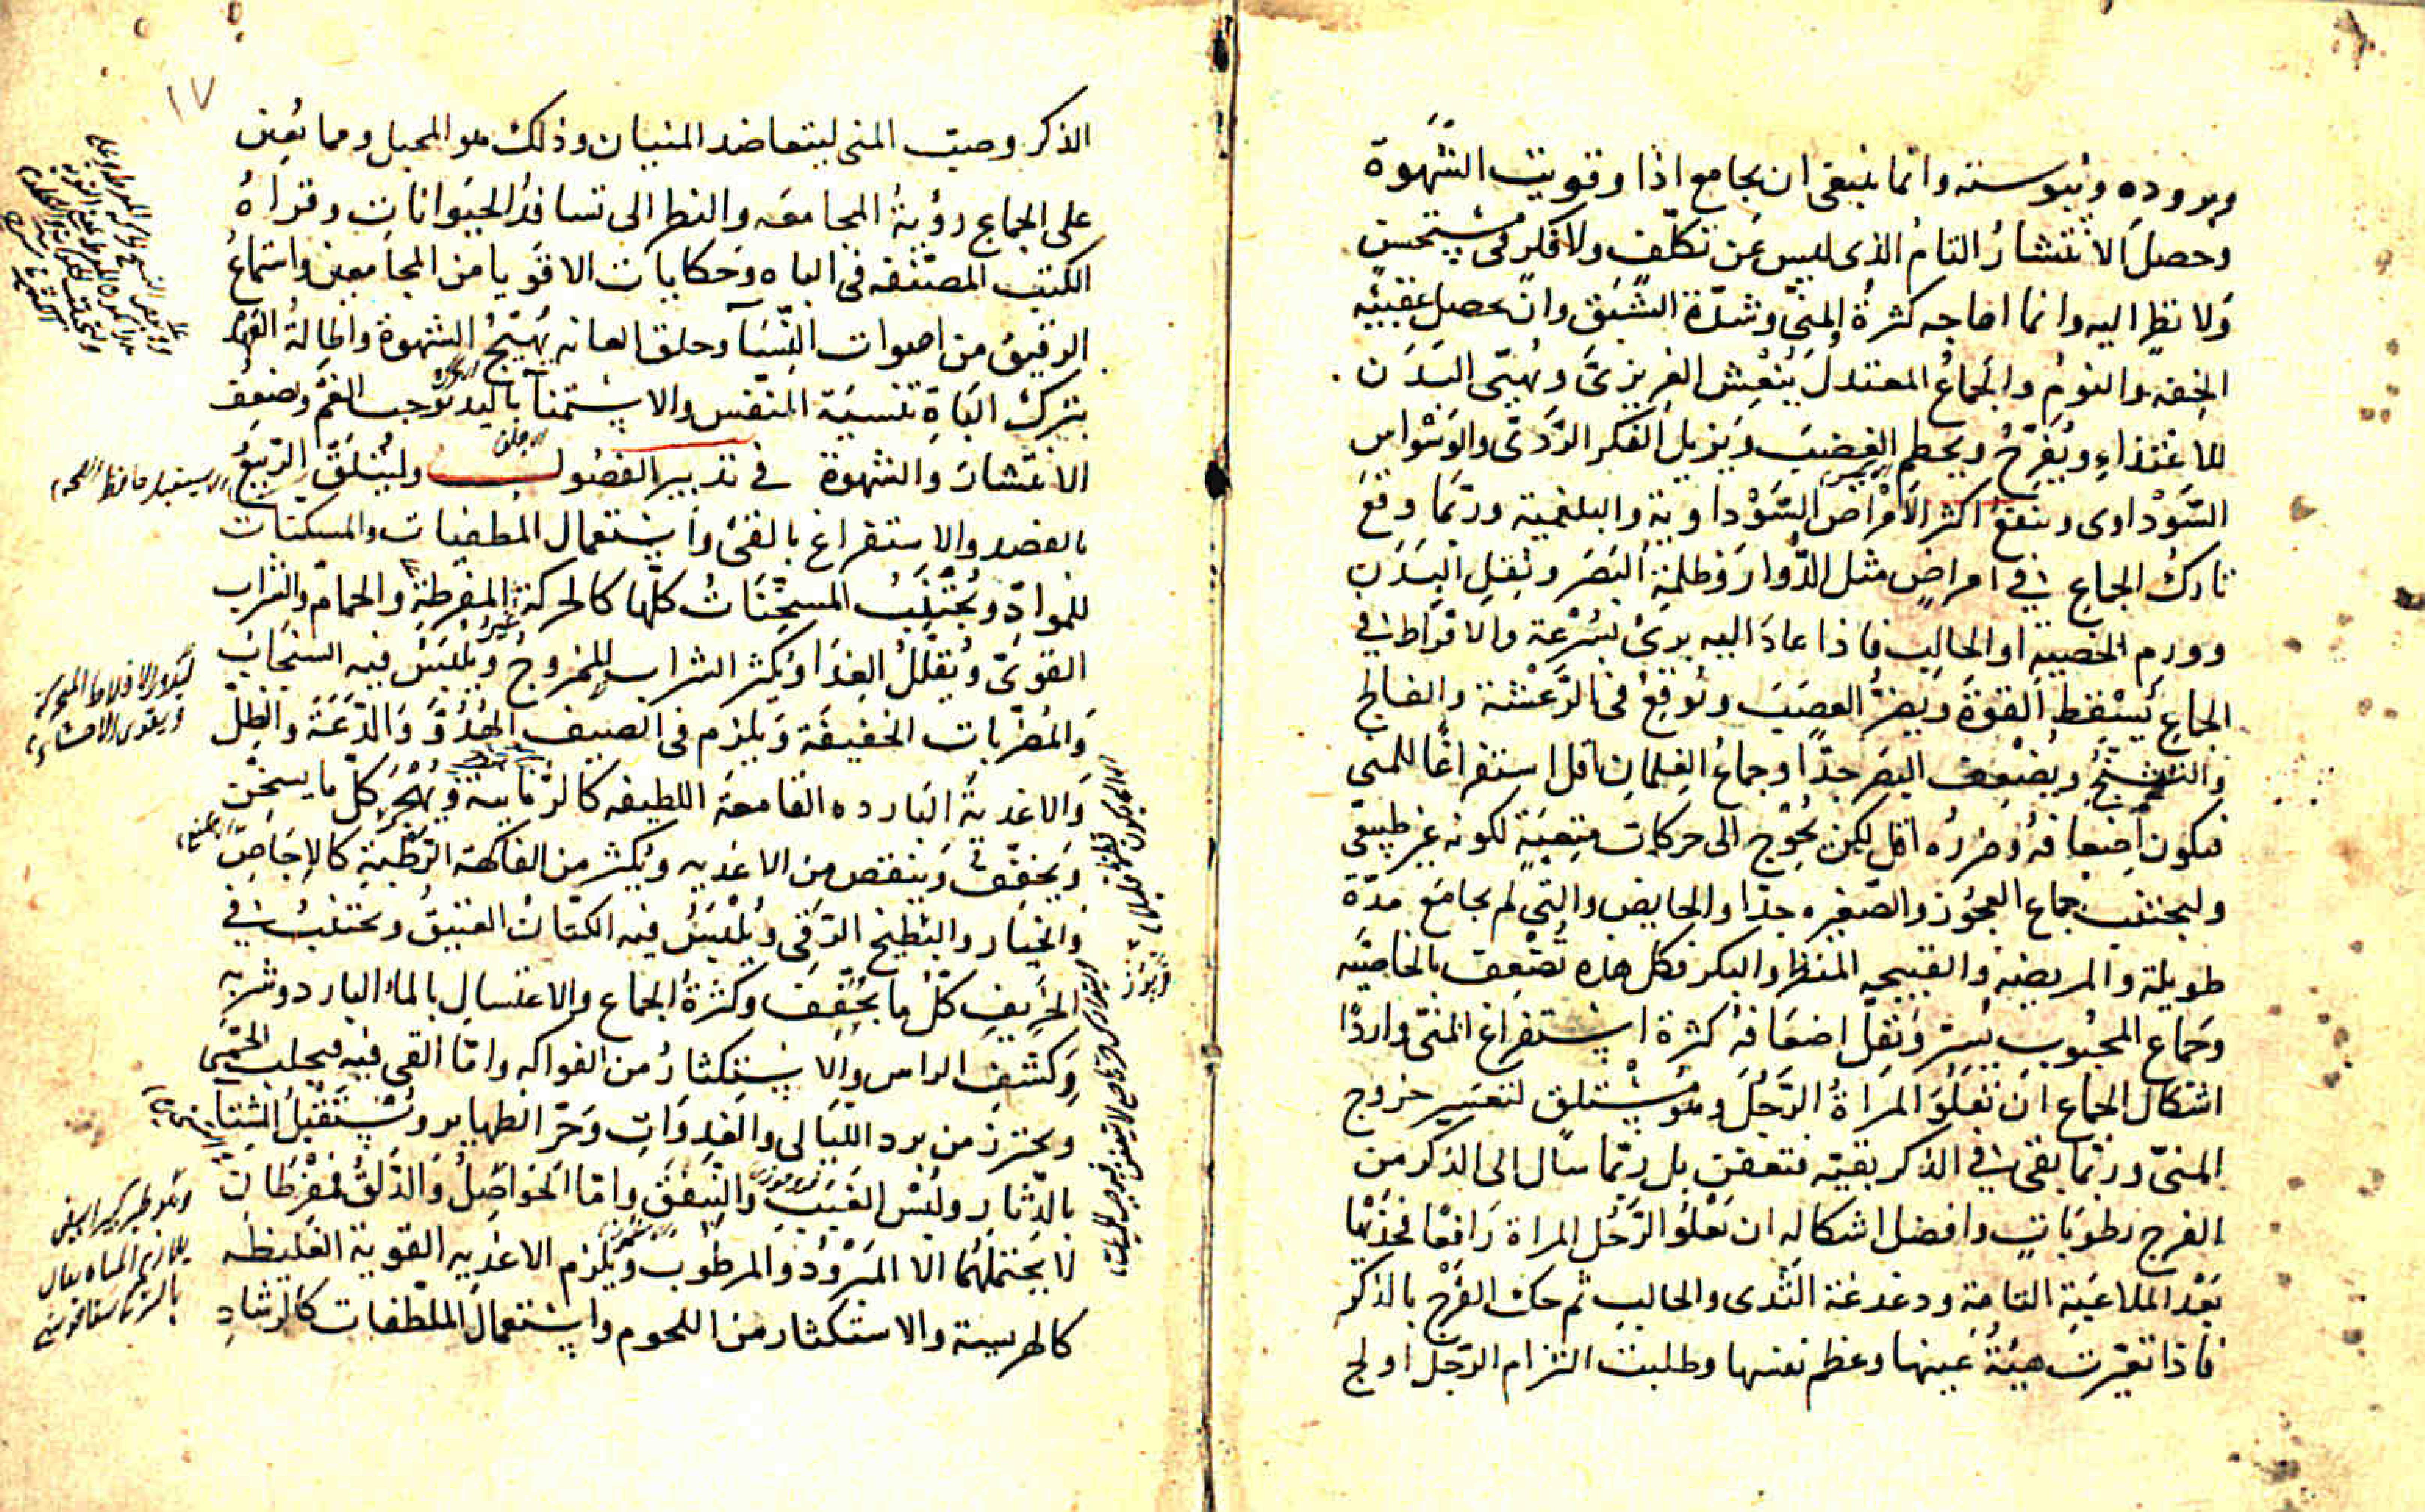 وبروده ويبوسته وانما ينبغى ان يجامع اذا وقويت الشهوة
وحصل الانتشار التام الذى ليس عن تكلّف ولا فكر فى مستحسن
ولا نظر اليه وانما اهاجه كثرة المنىّ وشدّة الشبق وان يحصل عقيبه
الخفه والنوم والجماع المعتدل ينعش الغريزىّ ويهيّى البدن
للاغتذاء ويفرّح ويحطم الغضب ويزيل الفكر الردىّ والوسواس
السّوداوى وينفع اكثر الامراض السّوداوية والبلغمية وربّما وقع
تارك الجماع فى امراض مثل الدّوار وظلمة البصر وثقل البدن
وورم الخصيه او الحالب فاذا عاد اليه برئ بسرعة والافراط فى
الجماع يسقط القوّة ويضرّ العصب ويوقع فى الرّعشة والفالج
والتشنّج ويضعف البصر جدّا وجماع الغلمان اقل استفراغا للمنى
فيكون اضعافه وضرره اقل لكن يحوج الى حركات متعبة لكونه غير طبيعى
وليجتنب جماع العجوز والصّغيره جدّا والحايض والتى لم يجامع مدّة
طويلة والمريضه والقبيحه المنظر والبكر فكل هذه تضعف بالخاصيّه
وجماع المحبوب يسرّ ويقلّ اضعافه كثرة استفراغ المنىّ واردا
اشكال الجماع ان تعلو المراة الرّجل وهو مستلق لتعسير خروج
المنىّ وربّما بقى فى الذكر بقيّه فتعفن بل ربّما سال الى الذكر من
الفرج رطوبات وافضل اشكاله ان يعلو الرّجل المراة رافعا فخذيها
بعد الملاعبة التامة ودغدغة الثّدى والحالب ثم حك الفرج بالذكر
فاذا تغيّرت هيئة عينها وعظم نفسها وطلبت التزام الرّجل اولج
١٧
الذكر وصبّ المنى ليتعاضد المنيان وذلك هو المحبل ومما يعين
على الجماع رؤية المجامعه والنظر الى تسافد الحيوانات وقراة
الكتب المصنّفه فى الباه وحكايات الاقويا من المجامعين واستماع
الرقيق من اصوات النّسآ وحلق العانه يهيّج الشهوة واطالة العهد
بترك الباة تنسية النفس والاستمنآ باليد يوجب الغمّ ويضعف
الانتشار والشهوة فى تدبير الفصول وليتلقّ الرّبيع
بالفصد والاستفراغ بالقئ واستعمال المطفيات والمسكنات
للموادّ ويجتنب المسخّنات كلّها كالحركة المفرطة والحمام والشراب
القوىّ ويقلّل الغذا ويكثر الشراب الممزوج ويلبس فيه السنجاب
والمضرّبات الخفيفة ويلزم فى الصيف الهدوّ والدّعة والظلّ
والاغذية البارده القامعة اللطيفه كالرّمّانية ويهجر كلّ ما يسخّن
ويجفّف وينقص من الاغذيه ويكثر من الفاكهة الرّطبة كالاجاص
والخيار والبطيخ الرّقى ويلبس فيه الكتّان العتيق ويجتنب فى
الخريف كلّ ما يجفّف وكثرة الجماع والاغتسال بالماء البارد وشربه
وكشف الراس والاستكثار من الفواكه وامّا القى فيه فيجلب الحمّى
ويحترز من برد اللّيالى والغدوات وحرّ الظهاير ويستقبل الشتا
بالدّثار ولبس الفنك والسّنجاب وامّا الحواصل والدّلق فمفرطان
لا يحتملهما الا المبرود والمرطوب ويلزم الاغذيه القوية الغليظه
كالهريسة والاستكثار من اللحوم واستعمال الملطّفات كالرشاد